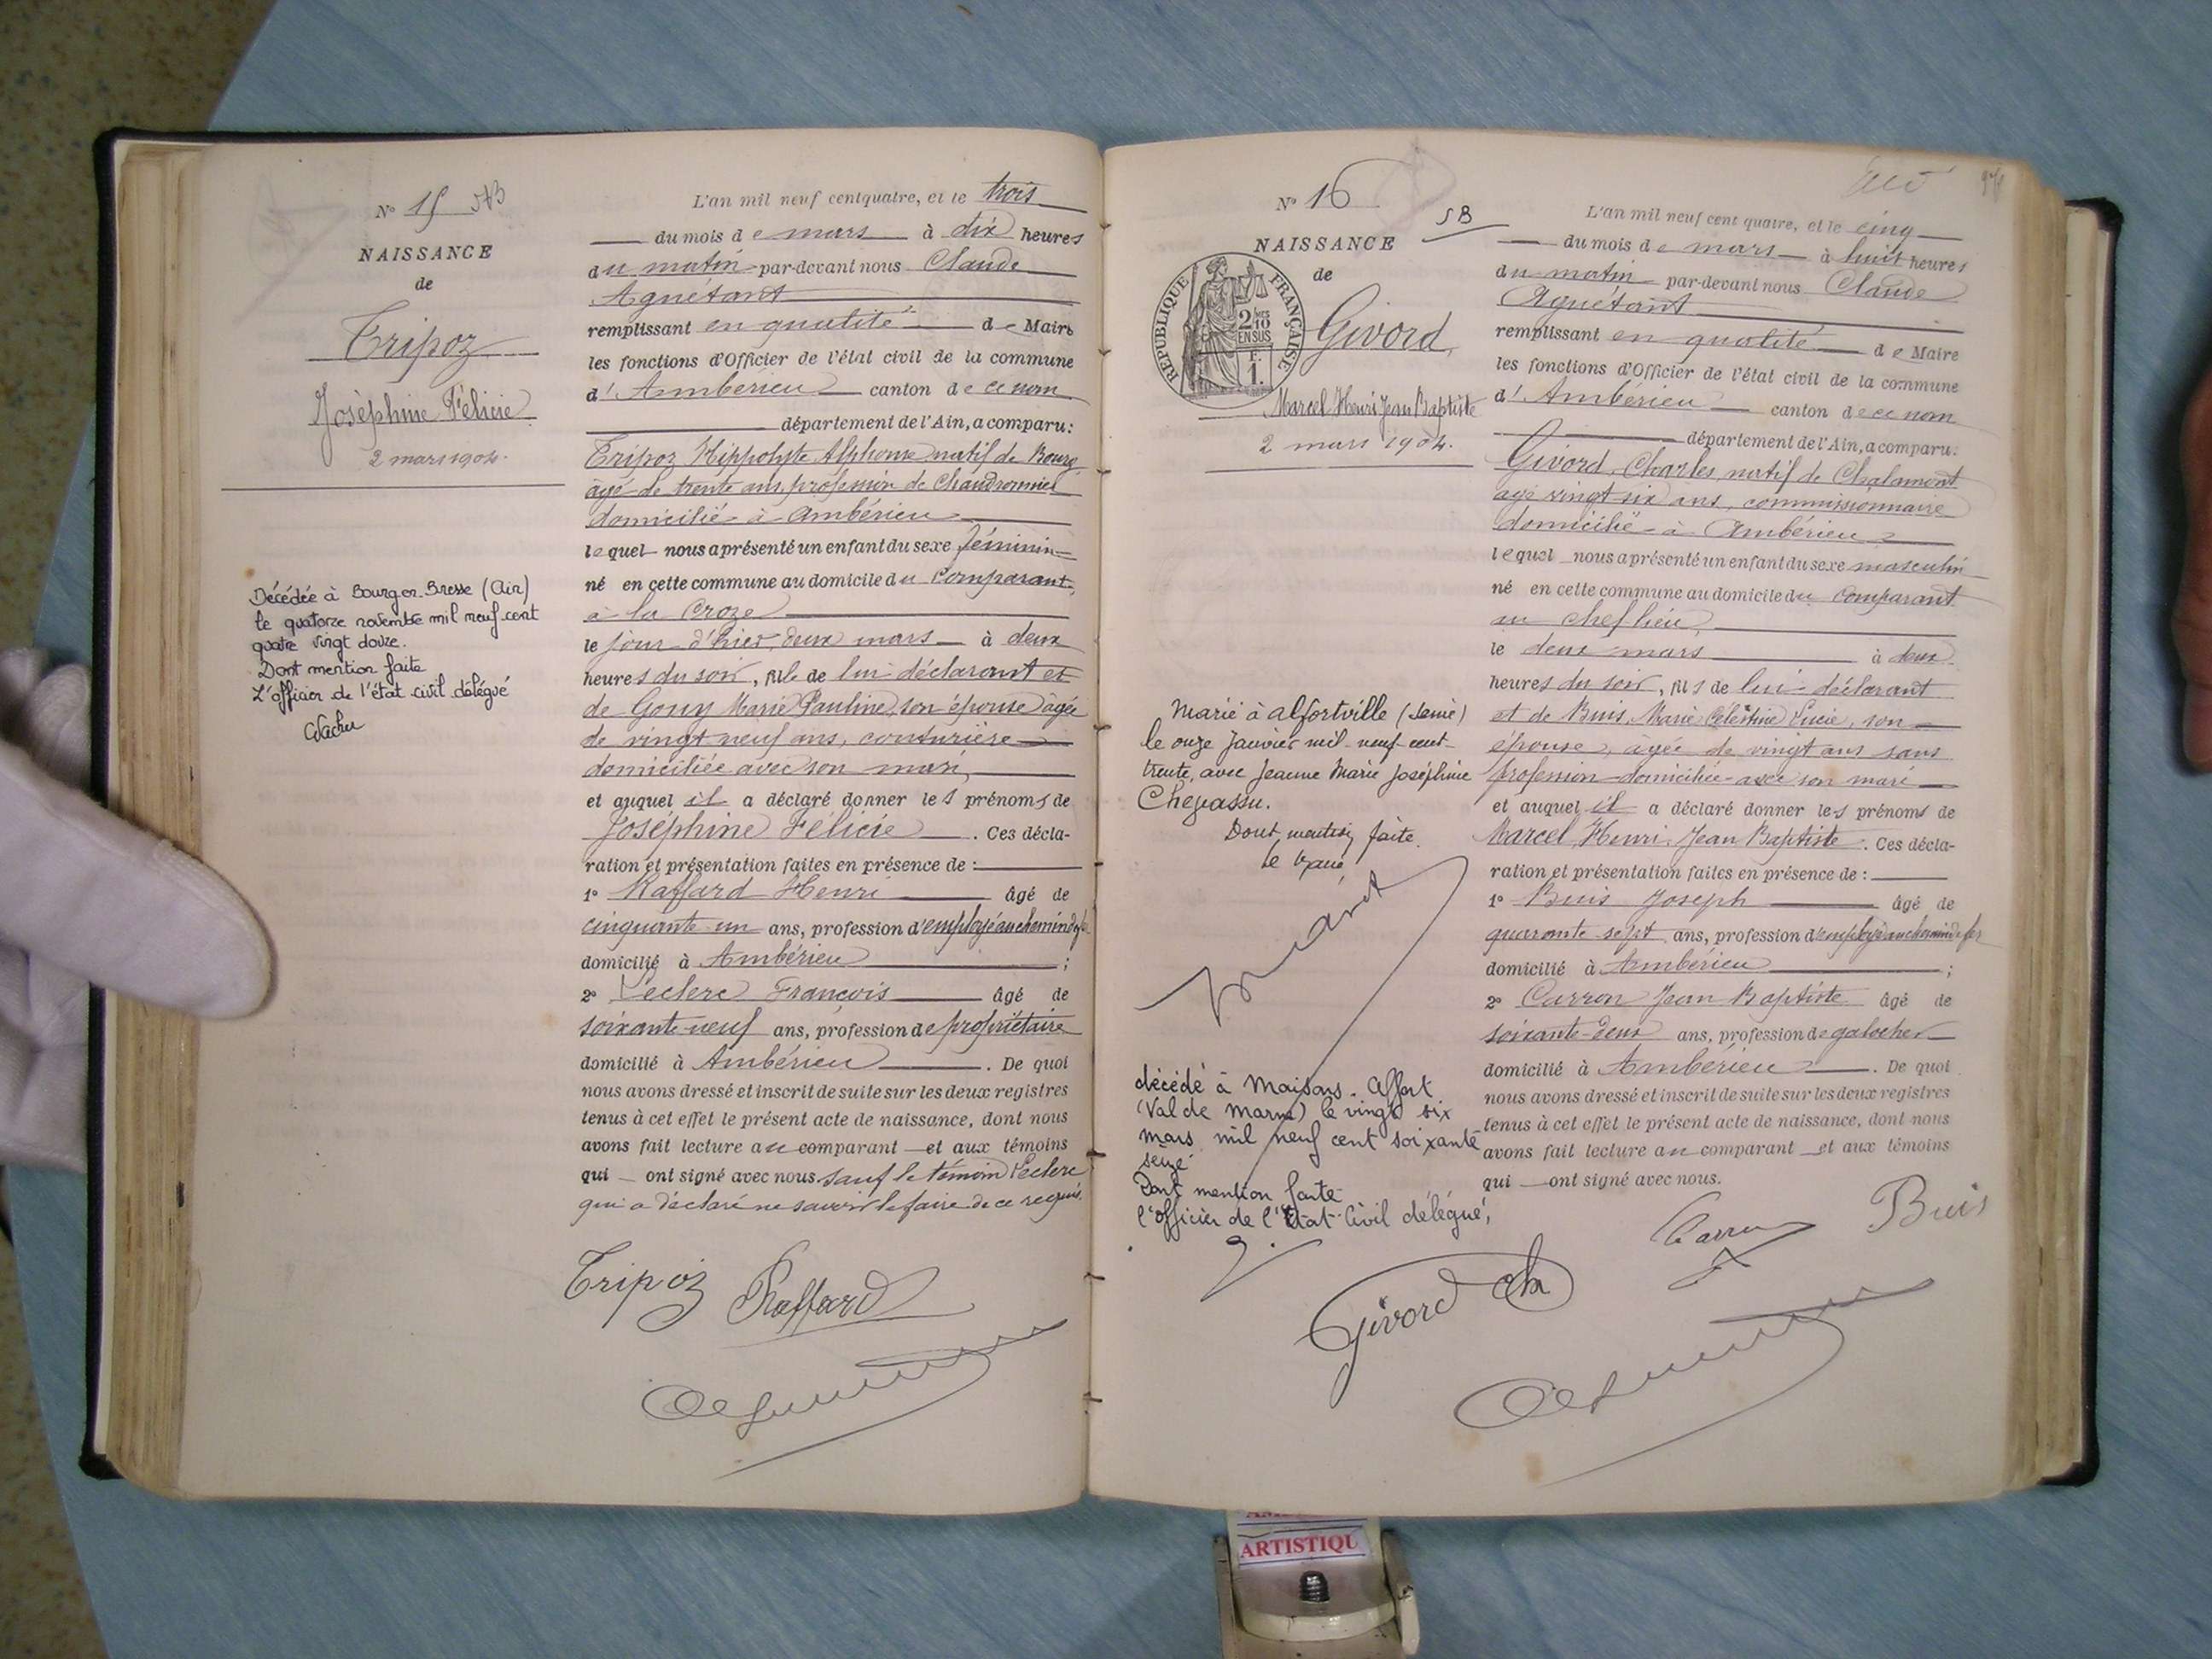 N° 15
NAISSANCE
de
Tripoz
Joséphine Félicie
2 mars 1904.
Décédée à Bourg-en-Bresse (Ain)
le quatorze novembre mil neuf cent
quatre vingt douze.
Dont mention faite
L'officier de l'état civil délégué
L'an mil neuf cent quatre, et le trois
du mois de mars à dix heures
du matin par-devant nous Claude
Aguétant
remplissant en qualité de Maire
les fonctions d'Officier de l'état civil de la commune
d'Ambérieu canton de ce nom
département de l'Ain, a comparu:
Tripoz Hippolyte Alphonse natif de Bourg
âgé de trente ans, profession de Chaudronnier
domicilié à Ambérieu
lequel nous a présenté un enfant du sexe féminin
né en cette commune au domicile du comparant
à la Croze
le jour d'hier, deux mars à deux
heures du soir, fille de lui déclarant et
de Gouy Marie Pauline, son épouse âgée
de vingt neuf ans, couturière
domiciliée avec son mari,
et auquel il a déclaré donner les prénoms de
Joséphine Félicie. Ces décla-
ration et présentation faites en présence de :
1° Raffard Henri âgé de
cinquante un ans, profession d'employé au chemin de fer
domicilié à Ambérieu ;
2° Leclerc François âgé de
soixante-neuf ans, profession de propriétaire
domicilié à Ambérieu. De quoi
nous avons dressé et inscrit de suite sur les deux registres
tenus à cet effet le présent acte de naissance, dont nous
avons fait lecture au comparant et aux témoins
qui ont signé avec nous sauf le témoin Leclerc
qui a déclaré ne savoir le faire de ce requis.
Tripoz Raffard
N° 16
SB
NAISSANCE
de
RÉPUBLIQUE FRANÇAISE
2/10
EN SUS
1 F.
Givord
Marcel Henri Jean Baptiste
2 mars 1904.
Marié à Alfortville (Seine)
le onze Janvier mil-neuf-cent-
trente, avec Jeanne Marie Joséphine
Dont mention faite.
décédé à Maisons-Alfort
(Val de Marne) le vingt six
mars mil neuf cent soixante
seize
Dont mention faite
l'officier de l'Etat-Civil délégué,
L'an mil neuf cent quatre, et le cinq
du mois de mars à huit heures
du matin par-devant nous Claude
Aguétant
remplissant en qualité de Maire
les fonctions d'Officier de l'état civil de la commune
d'Ambérieu canton de ce nom
département de l'Ain, a comparu:
Givord, Charles, natif de Chalamont
âgé vingt six ans, commissionnaire
domicilié à Ambérieu
lequel nous a présenté un enfant du sexe masculin
né en cette commune au domicile du comparant
au chef lieu,
le deux mars à deux
heures du soir, fils de lui déclarant
et de Buis, Marie Célestine Lucie, son
épouse, âgée de vingt ans sans
profession domiciliée avec son mari
et auquel il a déclaré donner les prénoms de
Marcel, Henri, Jean Baptiste. Ces décla-
ration et présentation faites en présence de :
1° Buis Joseph âgé de
quarante sept ans, profession d'employé au chemin de fer
domicilié à Ambérieu ;
2° Carron Jean Baptiste âgé de
soixante-deux ans, profession de galocher
domicilié à Ambérieu. De quoi
nous avons dressé et inscrit de suite sur les deux registres
tenus à cet effet le présent acte de naissance, dont nous
avons fait lecture au comparant et aux témoins
qui ont signé avec nous.
Carron Buis
Givord Ch
ARTISTIQU